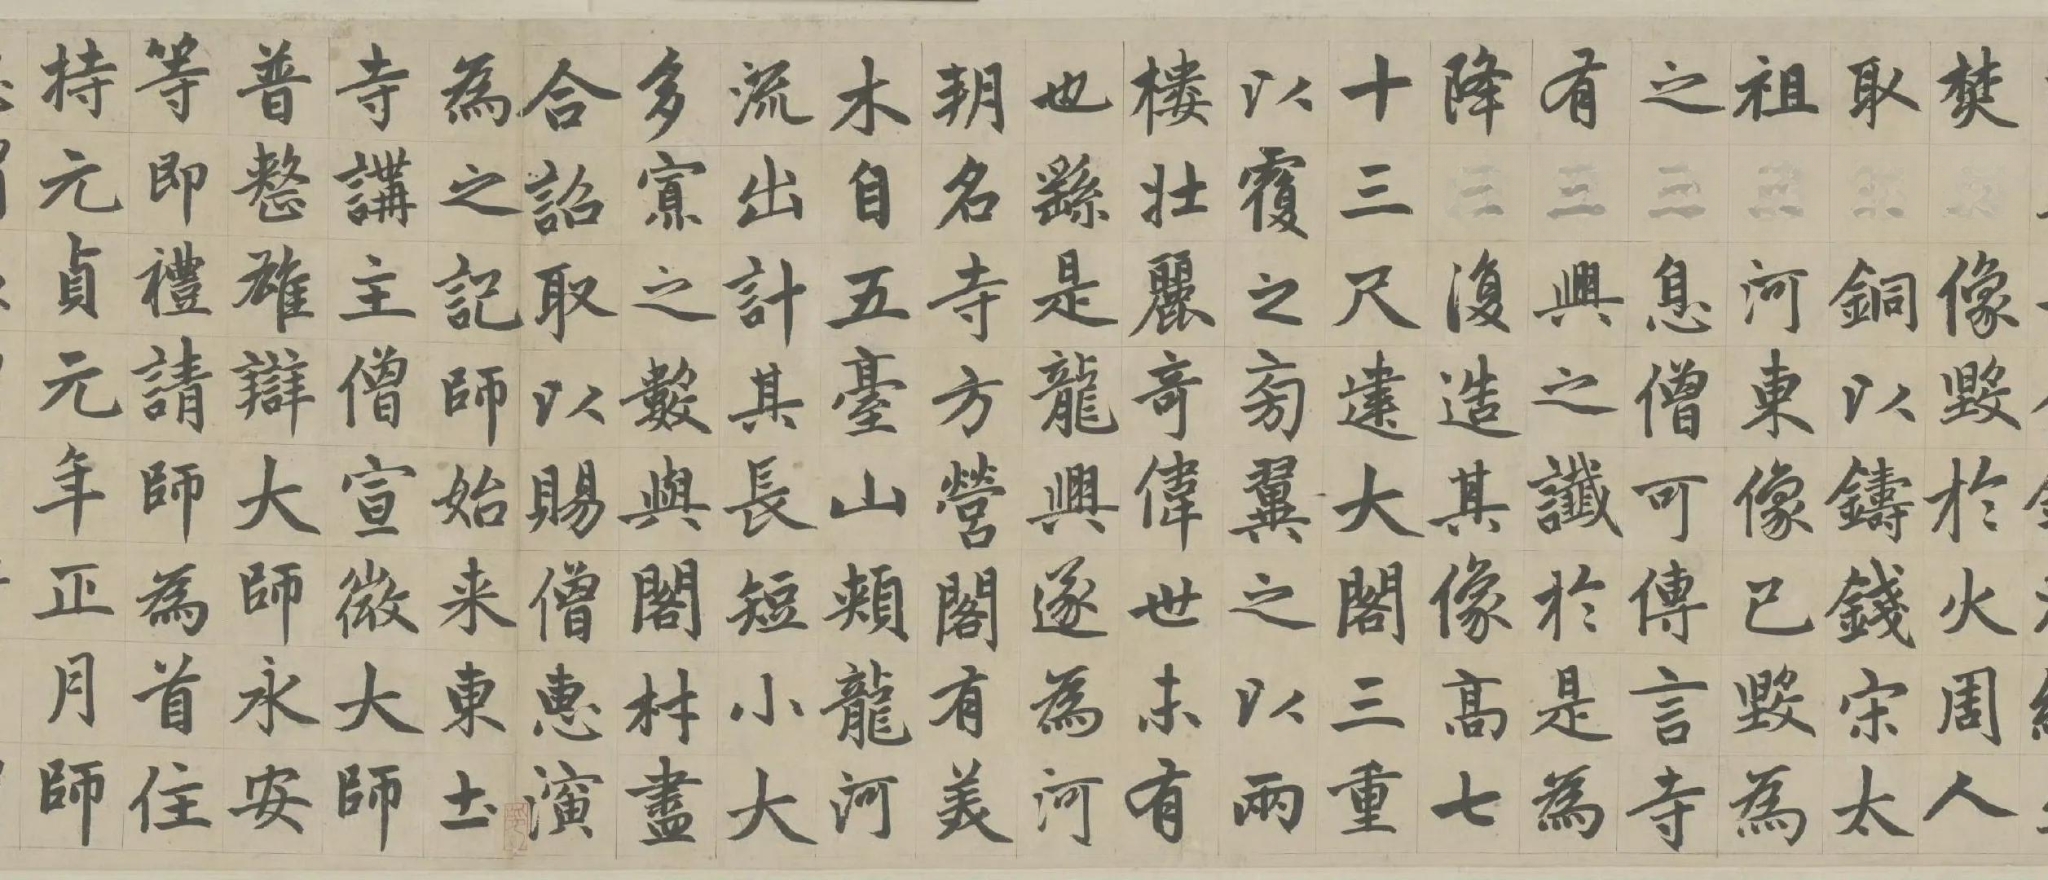 焚像毀於火周人
取銅以鑄錢宋太
祖河東像已毀為
之息僧可傳言寺
有興之讖於是為
降復造其像高七
十三尺建大閣三重
以覆之旁翼之以兩
樓壯麗奇偉世未有
也繇是龍興遂為河
朔名寺方營閣有美
木自五臺山頰龍河
流出計其長短小大
多寡之數與閣材盡
合詔取以賜僧惠演
為之記師始来東土
寺講主僧宣微大師
普整雄辯大師永安
等即禮請師為首住
持元貞元年正月師